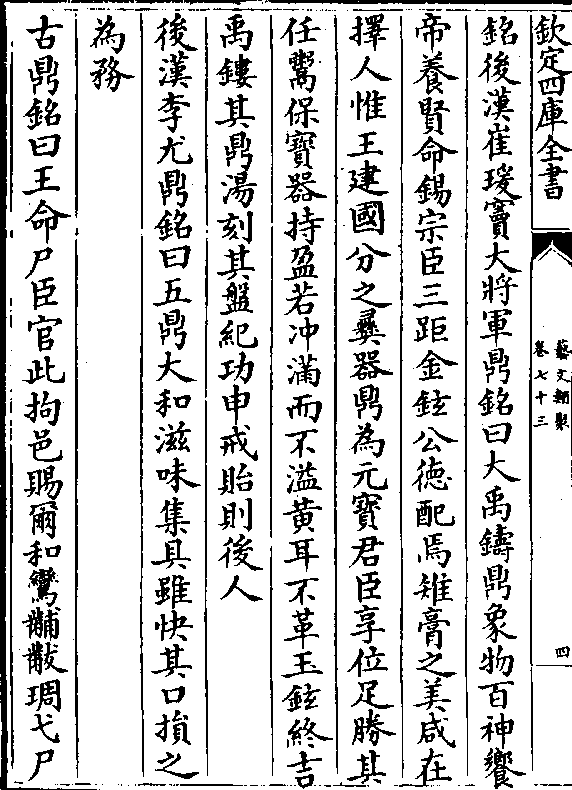 欽定四庫全書
藝文類聚
卷七十三
四
銘後漢崔瑗竇大將軍鼎銘曰大禹鑄鼎象物百神饗
帝養賢命錫宗臣三距金鉉公德配焉雉膏之美咸在
擇人惟王建國分之彞器鼎為元寶君臣享位足勝其
任鬻保寶器持盈若冲滿而不溢黃耳不革玉鉉終吉
禹鏤其鼎湯刻其盤紀功申戒貽則後人
後漢李尤鼎銘曰五鼎大和滋味集具雖快其口損之
為務
古鼎銘曰王命尸臣官此拘邑賜爾和鸞黼黻琱戈尸